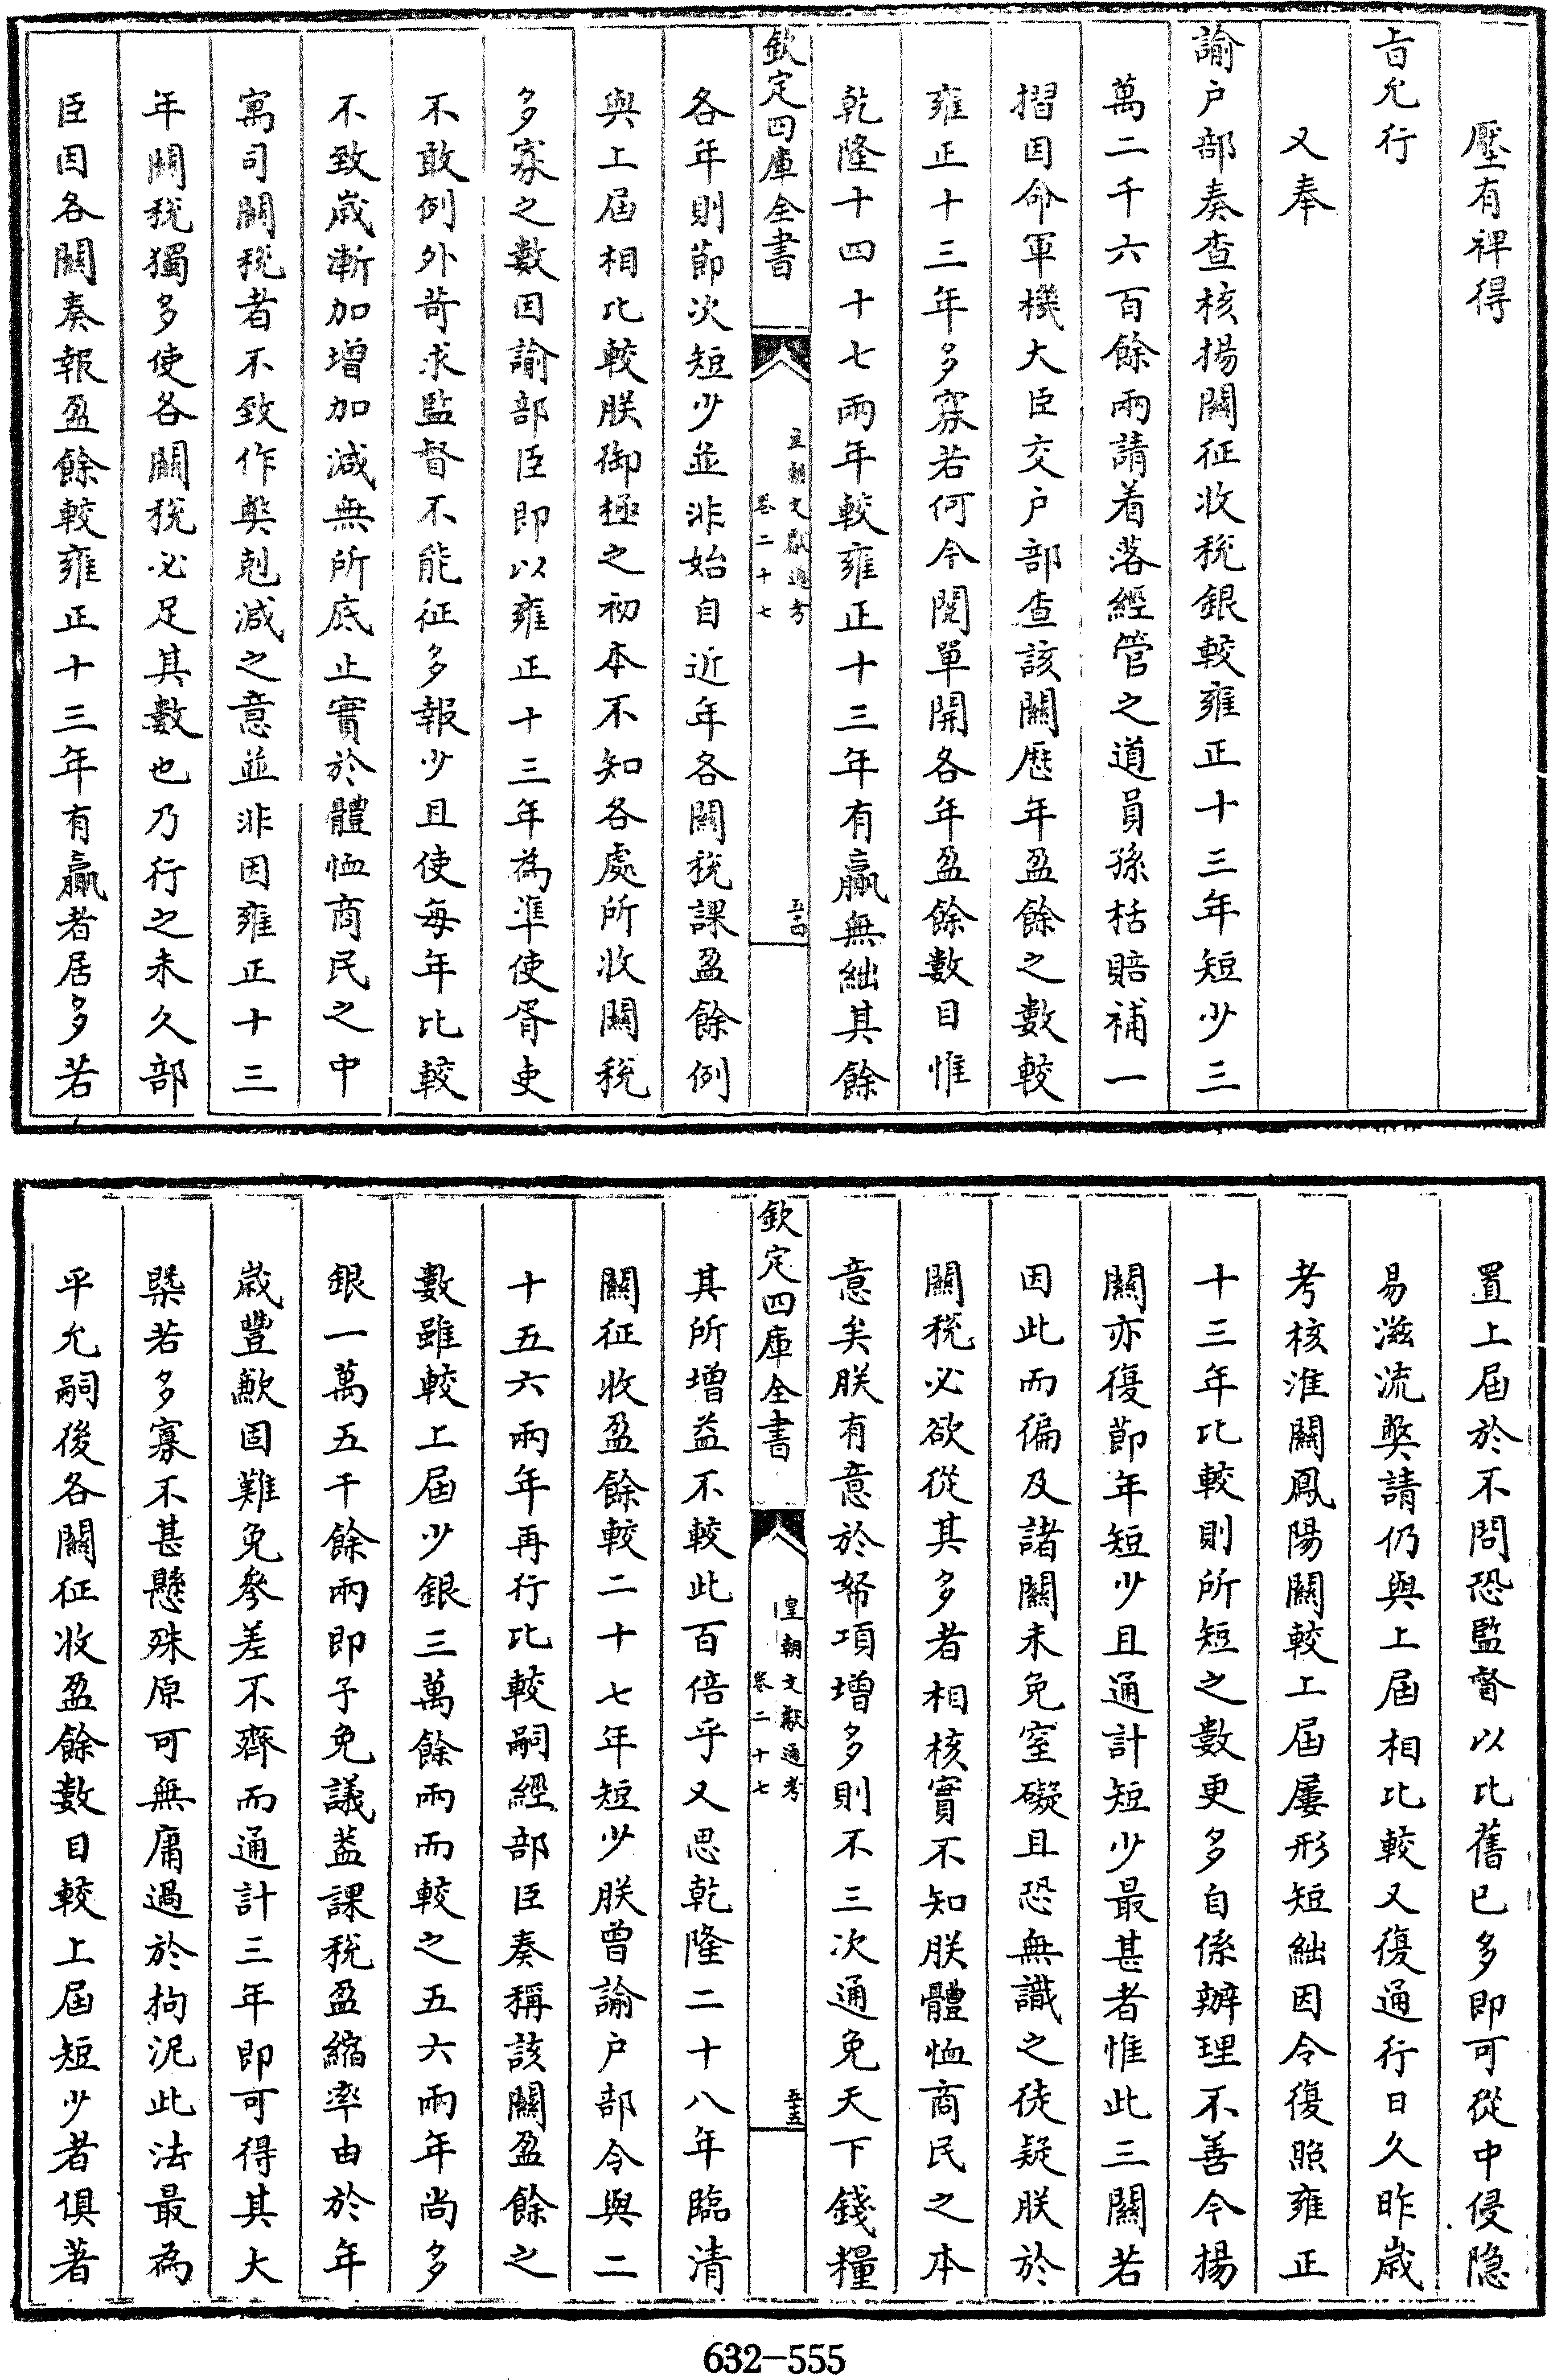 壓有裨得
旨允行
又奉
諭户部奏查核揚關征收稅銀較雍正十三年短少三
萬二千六百餘兩請着落經管之道員孫栝賠補一
摺因命軍機大臣交户部查該關歴年盈餘之數較
雍正十三年多寡若何今閱單開各年盈餘數目惟
乾隆十四十七兩年較雍正十三年有贏無絀其餘
欽定四庫全書
皇朝文獻通考
卷二十七
五十四
各年則節次短少並非始自近年各關稅課盈餘例
與上屆相比較朕御極之初本不知各處所收關稅
多寡之數因諭部臣即以雍正十三年為準使胥吏
不敢例外苛求監督不能征多報少且使每年比較
不致歲漸加增加減無所底止實於體恤商民之中
寓司關稅者不致作弊剋減之意並非因雍正十三
年關稅獨多使各關稅必足其數也乃行之未久部
臣因各關奏報盈餘較雍正十三年有贏者居多若
置上屆於不問恐監督以比舊已多即可從中侵隐
易滋流獘請仍與上屆相比較又復通行日久昨歲
考核淮關鳳陽關較上屆屢形短絀因令復照雍正
十三年比較則所短之數更多自係辦理不善今揚
關亦復節年短少且通計短少最甚者惟此三關若
因此而徧及諸關未免窒礙且恐無識之徒疑朕於
關稅必欲從其多者相核實不知朕體恤商民之本
意矣朕有意於帑項增多則不三次通免天下錢糧
欽定四庫全書
皇朝文獻通考
卷二十七
五十五
其所增益不較此百倍乎又思乾隆二十八年臨清
關征收盈餘較二十七年短少朕曾諭户部令與二
十五六兩年再行比較嗣經部臣奏稱該關盈餘之
數雖較上屆少銀三萬餘兩而較之五六兩年尚多
銀一萬五千餘兩即予免議葢課稅盈縮率由於年
歲豐歉固難免參差不齊而通計三年即可得其大
槩若多寡不甚懸殊原可無庸過於拘泥此法最為
平允嗣後各關征收盈餘數目較上屆短少者俱著
632—555